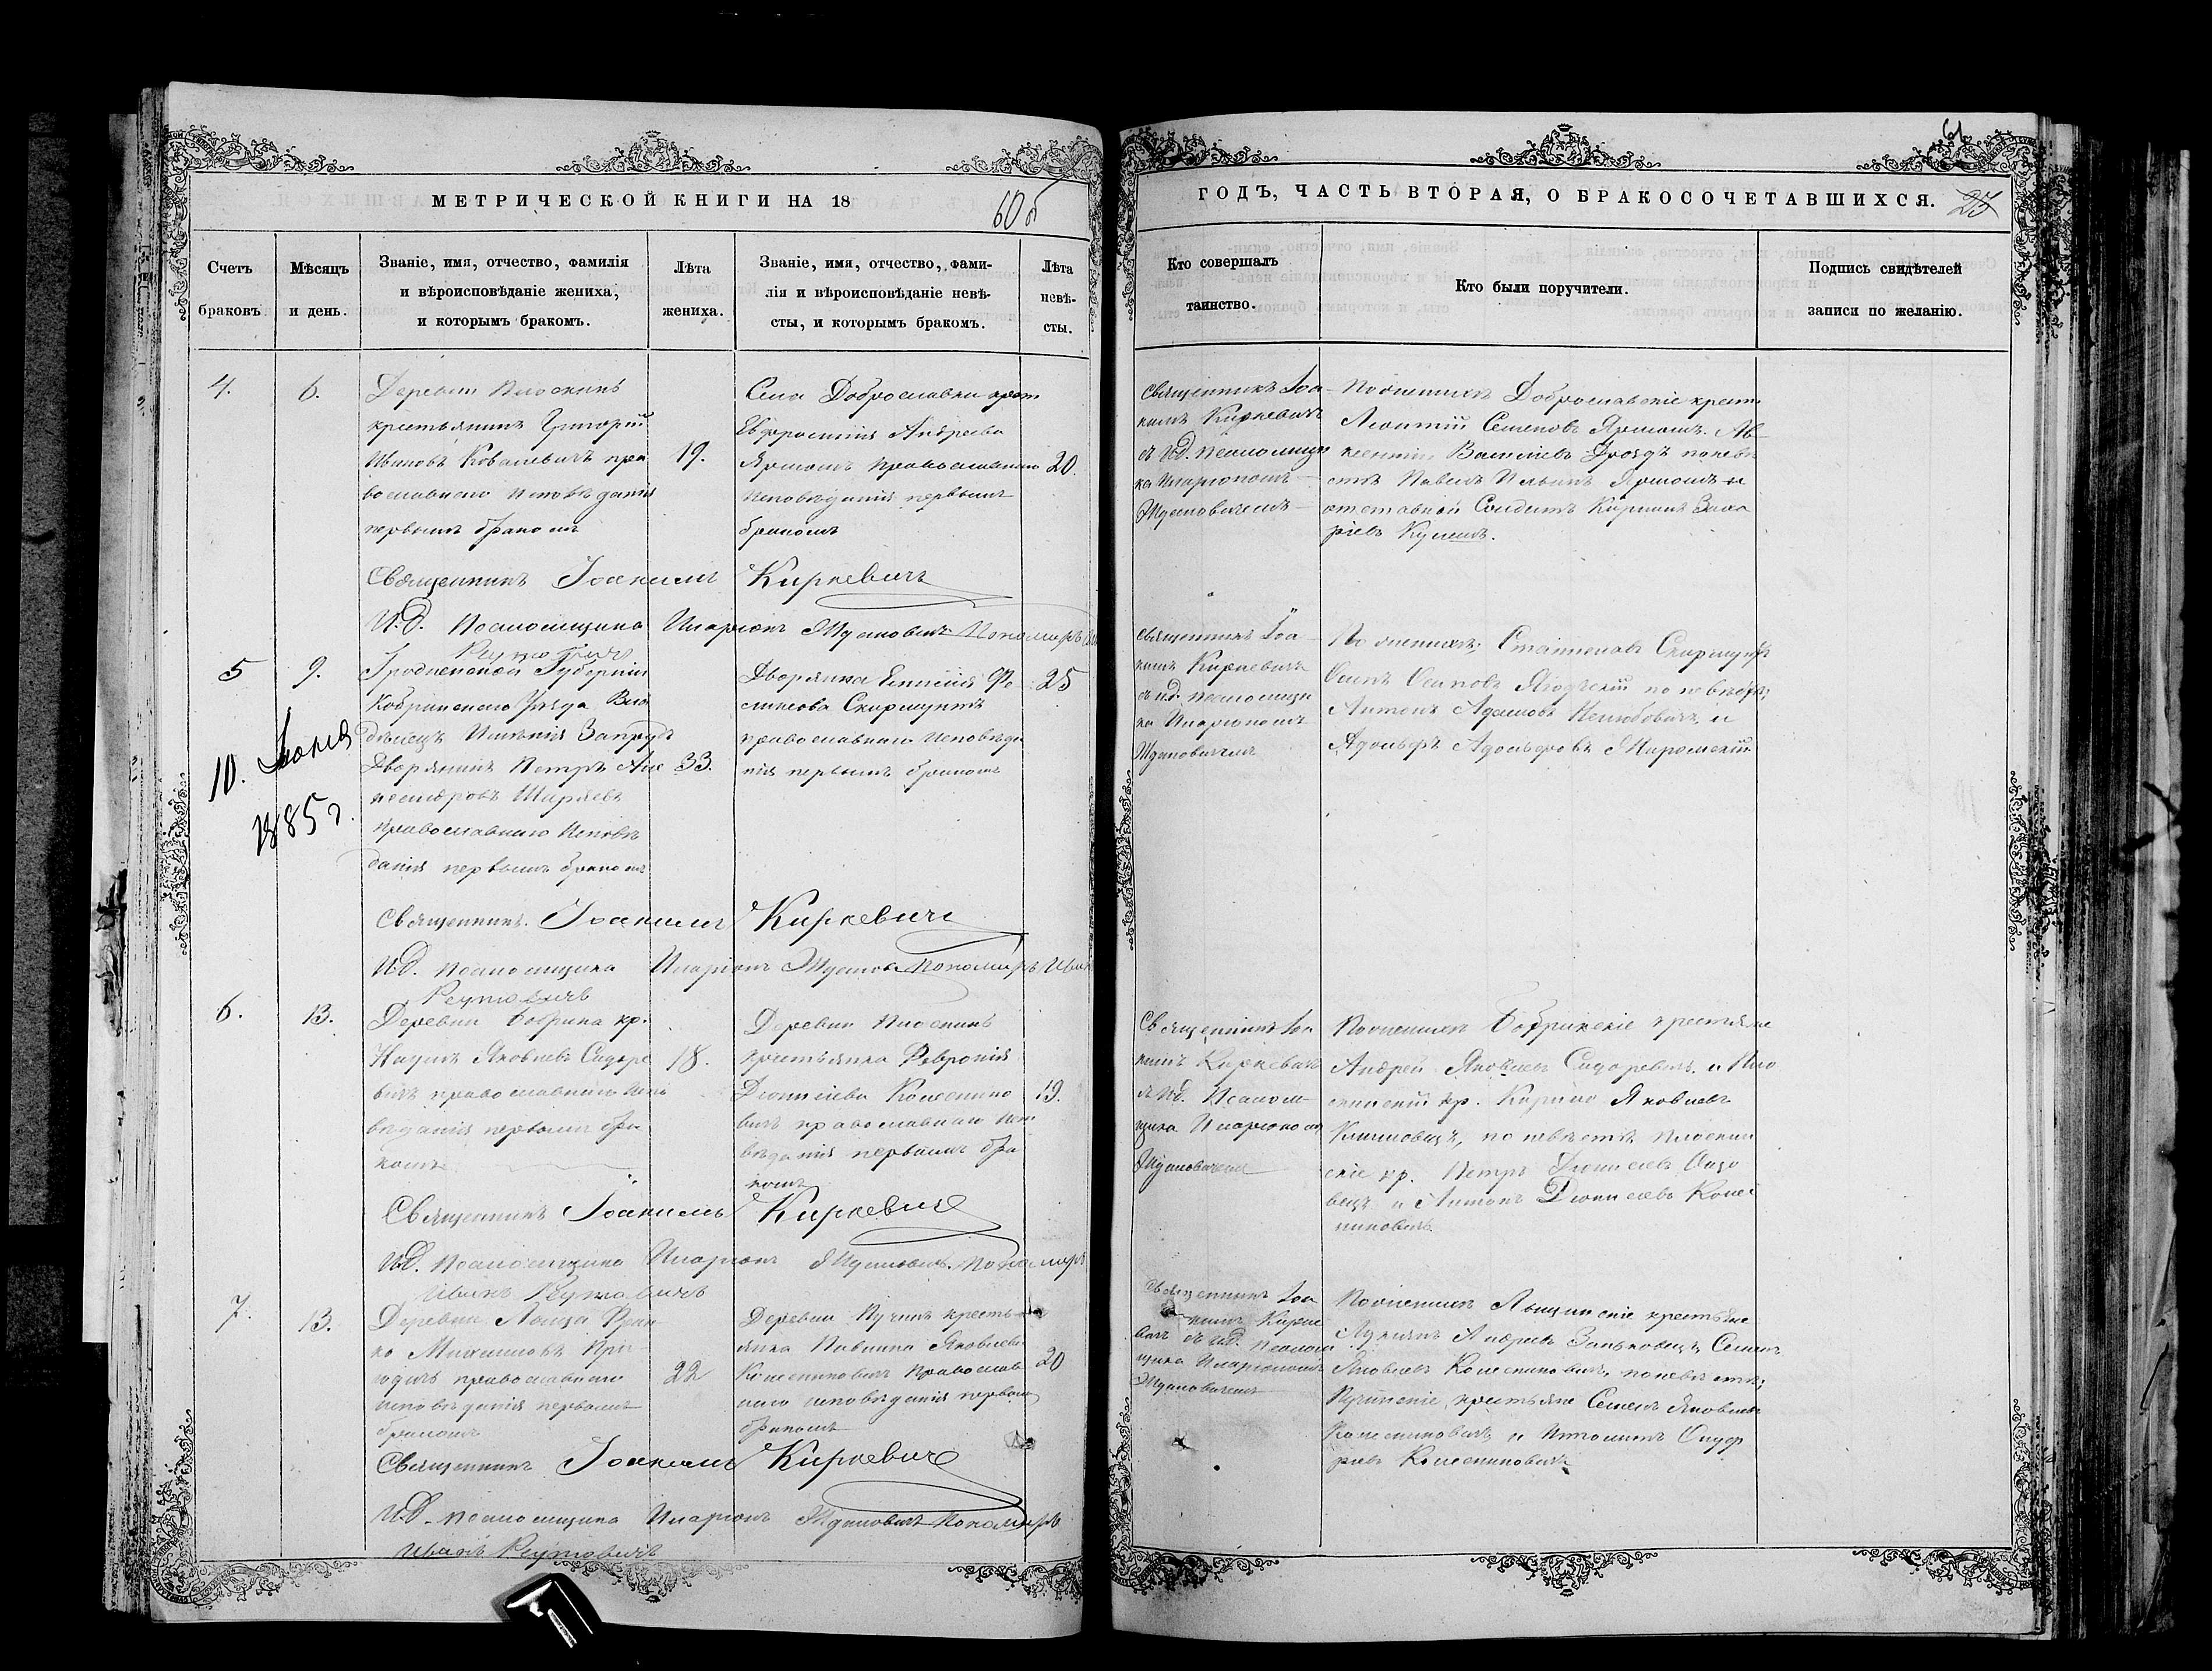 МЕТРИЧЕСКОЙ КНИГИ НА 18
60 об
Счетъ браковъ.
Мѣсяцъ и день.
Званіе, имя, отчество, фамилія
и вѣроисповѣданіе жениха,
и которымъ бракомъ.
Лѣта жениха.
Званіе, имя, отчество, фами-
лія и вѣроисповѣданіе невѣ-
сты, и которымъ бракомъ.
Лѣта невѣ-
сты.
4.
6.
Деревни Плоскинь
крестьянинъ Григорій
Ивановъ Ковалевичъ пра
вославнаго исповѣданія
первымъ бракомъ
19.
Села Доброславки крест
Евфросинія Андреева
Ярмошъ православнаго
исповѣданія первымъ
бракомъ
20.
Священникъ Іоакимъ Киркевичъ
И.д. псаломщика Иларіонъ Ждановичъ Пономарь
Реутовичъ
5
9.
Гродненской Губерніи
Кобринскаго Уѣзда Вла
дѣлецъ Имѣнія Запрудъ
Дворянинъ Петръ Але
ксандровъ Ширяевъ
православнаго исповѣ
данія первымъ бракомъ
33.
Дворянка Емилія Фе
ликсова Скирмунтъ
православнаго исповѣда
нія первымъ бракомъ
25
10. Іюня
1885 г.
Священникъ Іоакимъ Киркевичъ
И.д. псаломщика Иларіонъ Ждановичъ Пономарь Иванъ
Реутовичъ
6.
13.
Деревни Бобрика кр.
Наумъ Яковлевъ Сидоре
вичъ православнаго испо
вѣданія первымъ бра
комъ
18.
Деревни Плоскинь
крестьянка Февронія
Діонисіева Колеснико
вичъ православнаго испо
вѣданія первымъ бра
комъ
19.
Священникъ Іоакимъ Киркевичъ
И.д. псаломщика Иларіонъ Ждановичъ. Пономарь
Иванъ Реутовичъ
7.
13.
22
Деревни Пучинъ кресть
янка Павлина Яковлева
Колесниковичъ православ
наго исповѣданія первымъ
бракомъ
20
православнаго
исповѣданія первымъ
бракомъ
Священникъ Іоакимъ Киркевичъ
И.д. псаломщика Иларіонъ Ждановичъ Пономарь
Иванъ Реутовичъ
ГОДЪ, ЧАСТЬ ВТОРАЯ, О БРАКОСОЧЕТАВШИХСЯ.
61
25
Кто совершалъ
таинство.
Кто были поручители.
Подпись свидѣтелей
записи по желанію.
Священникъ Іоа
кимъ Киркевичъ
съ и.д. псаломщи
ка Иларіономъ
Ждановичемъ
По женихѣ Доброславскіе крест
Леонтій Семеновъ Ярмошъ. Ав
ксентій Василіевъ Дроздъ по невѣ
стѣ Павелъ Ильинъ Ярмошъ и
отставной Солдатъ Кирилъ Заха
ріевъ Кулешъ.
Священникъ Іоа
кимъ Киркевичъ
съ и.д. псаломщи
ка Иларіономъ
Ждановичемъ
По женихѣ; Станиславъ Скирмунтъ
Осипъ Осиповъ по невѣстѣ;
Антонъ Адамовъ и
Адольфъ Адольфовъ
Священникъ Іоа
кимъ Киркевичъ
съ и.д. Псалом
щика Иларіономъ
Ждановичемъ
По женихѣ Бобрикскіе крестьяне
Андрей Яковлевъ Сидоревичъ. и Пло
скинскій кр. Кирило Яковлевъ
Климовецъ, по невѣстѣ Плоскин
скіе кр. Петръ Діонисіевъ
вецъ и Антонъ Діонисіевъ Колес
никовичъ.
Священникъ Іоа
кимъ Кирке
вичъ съ и.д. псалом
щика Иларіономъ
Ждановичемъ
По женихѣ крестьяне
Андреевъ Семенъ
Яковлевъ Колесниковичъ, по невѣстѣ;
Пучинскіе крестьяне Семенъ Яковлевъ
Колесниковичъ и
Колесниковичъ